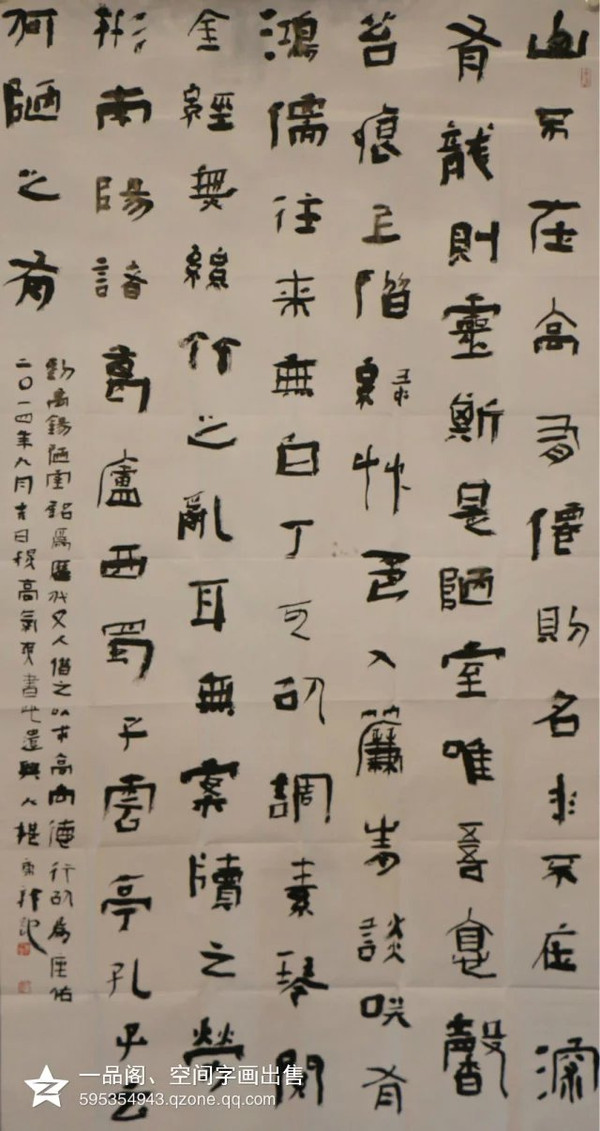 山不在高有僊則名水不在深
有龍則靈斯是陋室唯吾悳馨
苔痕上階綠艸色入簾青談咲有
鴻儒往来無白丁可以調素琴閱
金經無絲竹之亂耳無案牘之勞
形南陽諸葛廬西蜀子雲亭孔子云
何陋之有
劉禹錫陋室銘為歷代文人借之以求高尚德行以為座佑
二〇一四年九月吉日秋高氣爽書此遣興人楊記
一品阁、空间字画出售
595354943.qzone.qq.com